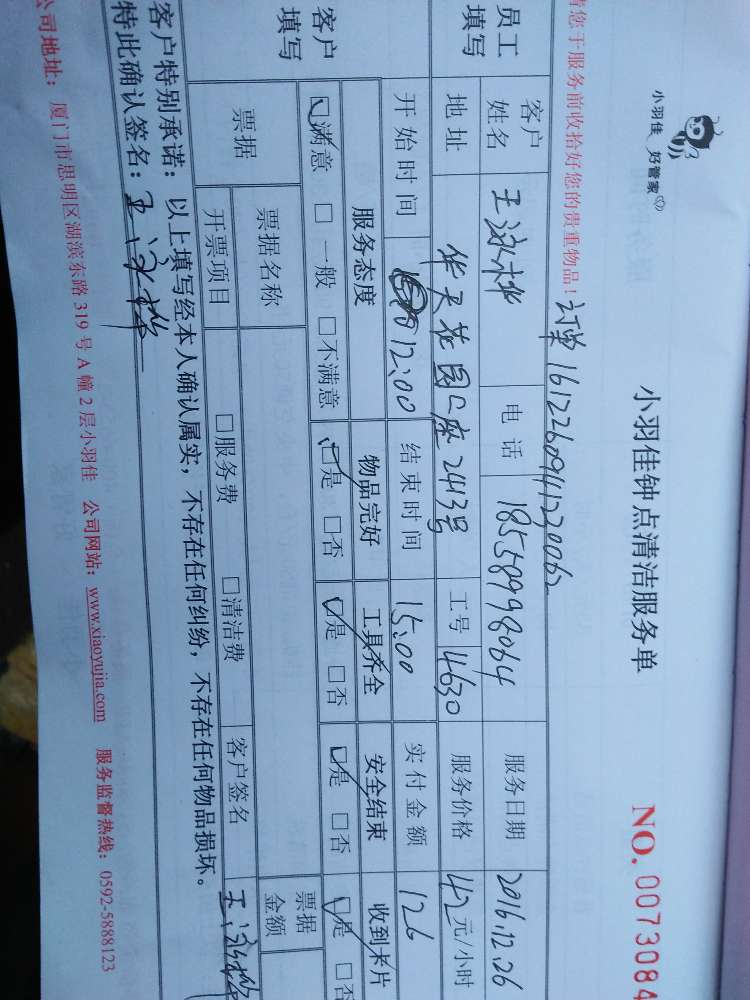 小羽佳 好管家
小羽佳钟点清洁服务单
NO. 0073084
请您于服务前收拾好您的贵重物品!
订单1612260941230062
员工填写
客户姓名 王 电话 18558998064 服务日期 2016.12.26
地址 华天花园C座2413号 工号 4630 服务价格 42元/小时
开始时间 12:00 结束时间 15:00 实付金额 126
客户填写
服务态度 物品完好 工具齐全 安全结束 收到卡片
☑满意 □一般 □不满意 ☑是 □否 ☑是 □否 ☑是 □否 ☑是 □否
票据 票据名称 票据金额
开票项目 □服务费 □清洁费 客户签名 王
客户特别承诺:以上填写经本人确认属实,不存在任何纠纷,不存在任何物品损坏。
特此确认签名:王
公司地址:厦门市思明区湖滨东路319号A幢2层小羽佳 公司网站:www.xiaoyujia.com 服务监督热线:0592-5888123